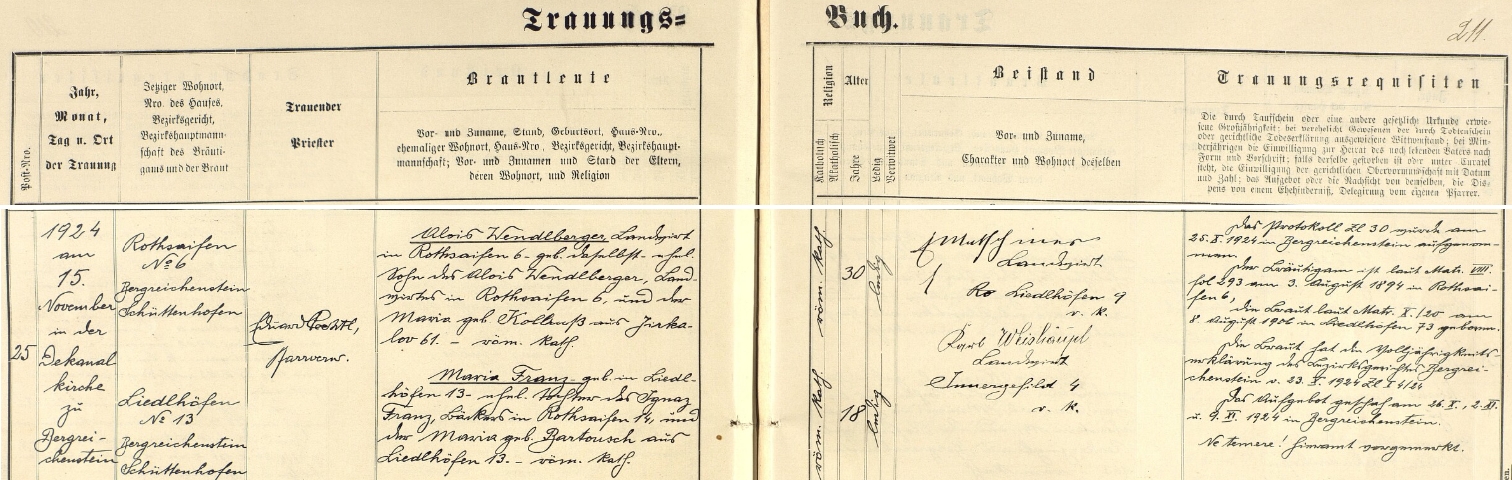 Trauungs=
Buch.
211.
Post-Nro.
Jahr,
Monat,
Tag u. Ort
der Trauung
Jetziger Wohnort,
Nro. des Hauses,
Bezirksgericht,
Bezirkshauptmann-
schaft des Bräuti-
gams und der Braut
Trauender
Priester
Brautleute
Vor- und Zuname, Stand, Geburtsort, Haus-Nro.,
ehemaliger Wohnort, Haus-Nro., Bezirksgericht, Bezirkshaupt-
mannschaft; Vor- und Zunamen und Stand der Eltern,
deren Wohnort, und Religion
Religion
Katholisch
Akatholisch
Alter
Jahre
Ledig
Verwitwet
Beistand
Vor- und Zuname,
Charakter und Wohnort desselben
Trauungsrequisiten
Die durch Taufschein oder eine andere gesetzliche Urkunde erwie-
sene Großjährigkeit; bei verehelicht Gewesenen der durch Todtenschein
oder gerichtliche Todeserklärung ausgewiesene Wittwenstand; bei Min-
derjährigen die Einwilligung zur Heirat des noch lebenden Vaters nach
Form und Vorschrift; falls derselbe gestorben ist oder unter Curatel
steht, die Einwilligung der gerichtlichen Obervormundschaft mit Datum
und Zahl; das Aufgebot oder die Nachsicht von demselben, die Dis-
pens von einem Ehehinderniß, Delegirung vom eigenen Pfarrer.
25
1924
am
15.
November
in der
Dekanal
kirche
zu
Bergrei-
chenstein
Rothsaifen
No 6
Bergreichenstein
Schüttenhofen
Liedlhöfen
No 13
Bergreichenstein
Schüttenhofen
Eduard
Pfarrverw.
Alois Wendlberger, Landwirt
in Rothsaifen 6 - geb. daselbst - ehel.
Sohn des Alois Wendlberger, Land
wirtes in Rothsaifen 6, und der
Maria geb. Kollruß aus Jirka-
lov 61. - röm. kath.
Maria Franz - geb. in Liedl-
höfen 13 - ehel. Tochter des Ignaz
Franz, Bäckers in Rothsaifen 14, und
der Maria geb. Bartousch aus
Liedlhöfen 13. - röm. kath.
röm. kath.
30
ledig
röm. kath.
18
ledig
Matschiner
Landwirt
Liedlhöfen 9
r. k.
Karl Weishäupl
Landwirt
Innergefild 4
r. k.
Das Protokoll Zl 30 wurde am
25. X. 1924 in Bergreichenstein aufgenom-
men.
Der Bräutigam ist laut Matr. VIII.
fol 293 am 3. August 1894 in Rothsai-
fen 6,
die Braut laut Matr. X./20 am
8. August 1906 in Liedlhöfen 73 geboren.
Die Braut hat die Volljährigkeits-
erklärung des Bezirksgerichtes Bergrei-
chenstein v. 23. X. 1924 Zl
Das Aufgebot geschah am 26. X., 2. XI.
u. 9. XI. 1924 in Bergreichenstein.
Ne temere! hieramt vorgemerkt.